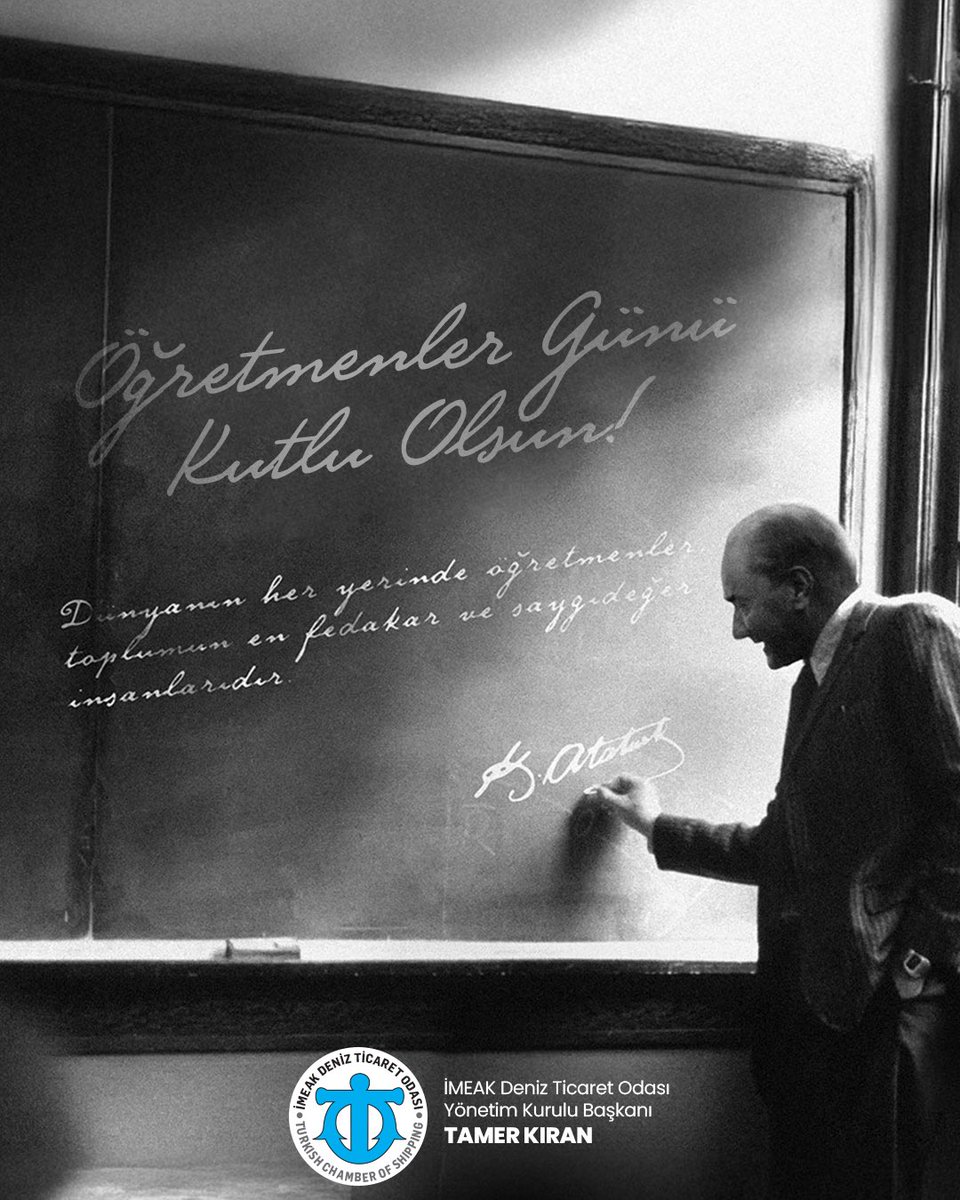 Öğretmenler Günü
Kutlu Olsun!
Dünyanın her yerinde öğretmenler,
toplumun en fedakar ve saygıdeğer
insanlarıdır.
K. Atatürk
İMEAK DENİZ TİCARET ODASI
TURKISH CHAMBER OF SHIPPING
İMEAK Deniz Ticaret Odası
Yönetim Kurulu Başkanı
TAMER KIRAN